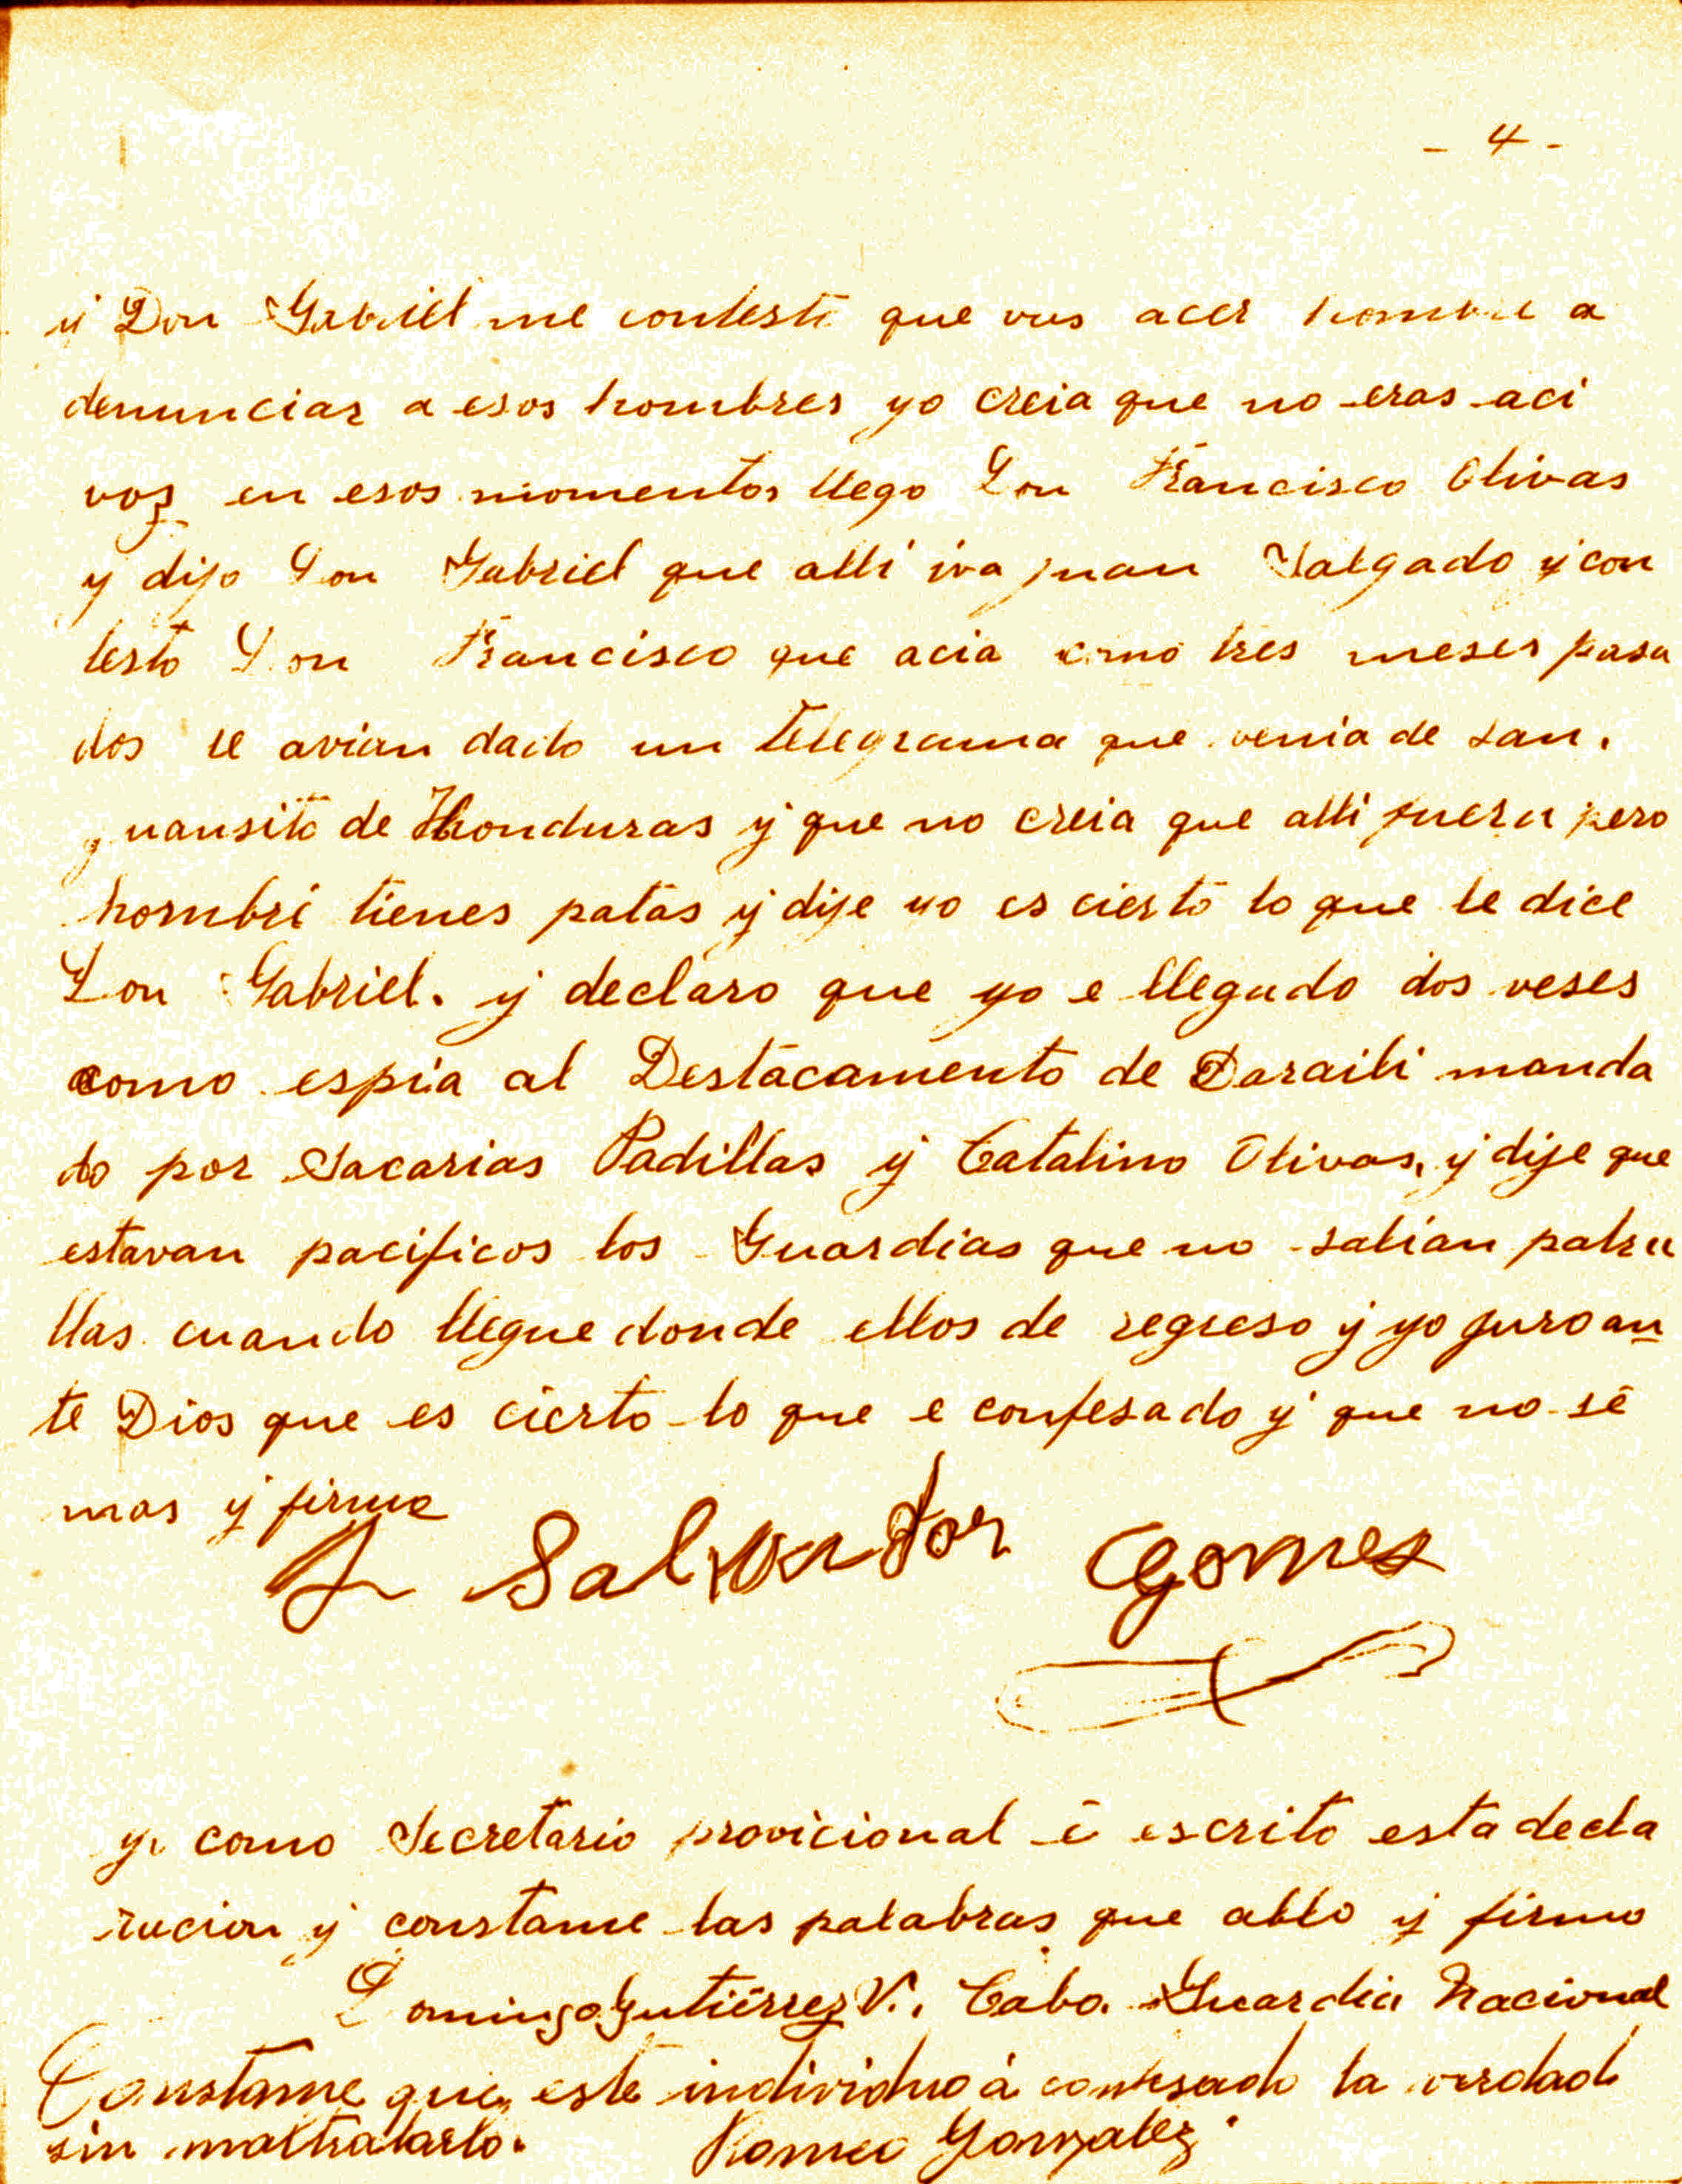 - 4 -
y Don Gabriel me contestó que vas acer hombre a
denunciar a esos hombres yo creia que no eras aci
voz en esos momentos llego Don Francisco Olivas
y dijo Don Gabriel que alli iva juan Salgado y con
testo Don Francisco que acia como tres meses pasa
dos le avian dado un Telegrama que venia de San.
juansito de Honduras y que no creia que alli fuera pero
hombré tienes patas y dije yo es cierto lo que le dice
Don Gabriel. y declaro que yo e llegado dos veses
como espia al Destacamento de Daraili manda
do por Sacarias Padillas y Catalino Olivas, y dije que
estavan pacificos los Guardias que no salian patru
llas cuando llegue donde ellos de regreso y yo juro an
te Dios que es cierto lo que e confesado y que no sé
mas y firmo
Salvador Gomes
yo como Secretario provicional é escrito esta decla
racion y constame las palabras que ablo y firmo
Domingo Gutiérrez V., Cabo. Guardia Nacional
Constame que este individuo á confesado la verdad
sin maltratarlo. Romeo Gonzalez